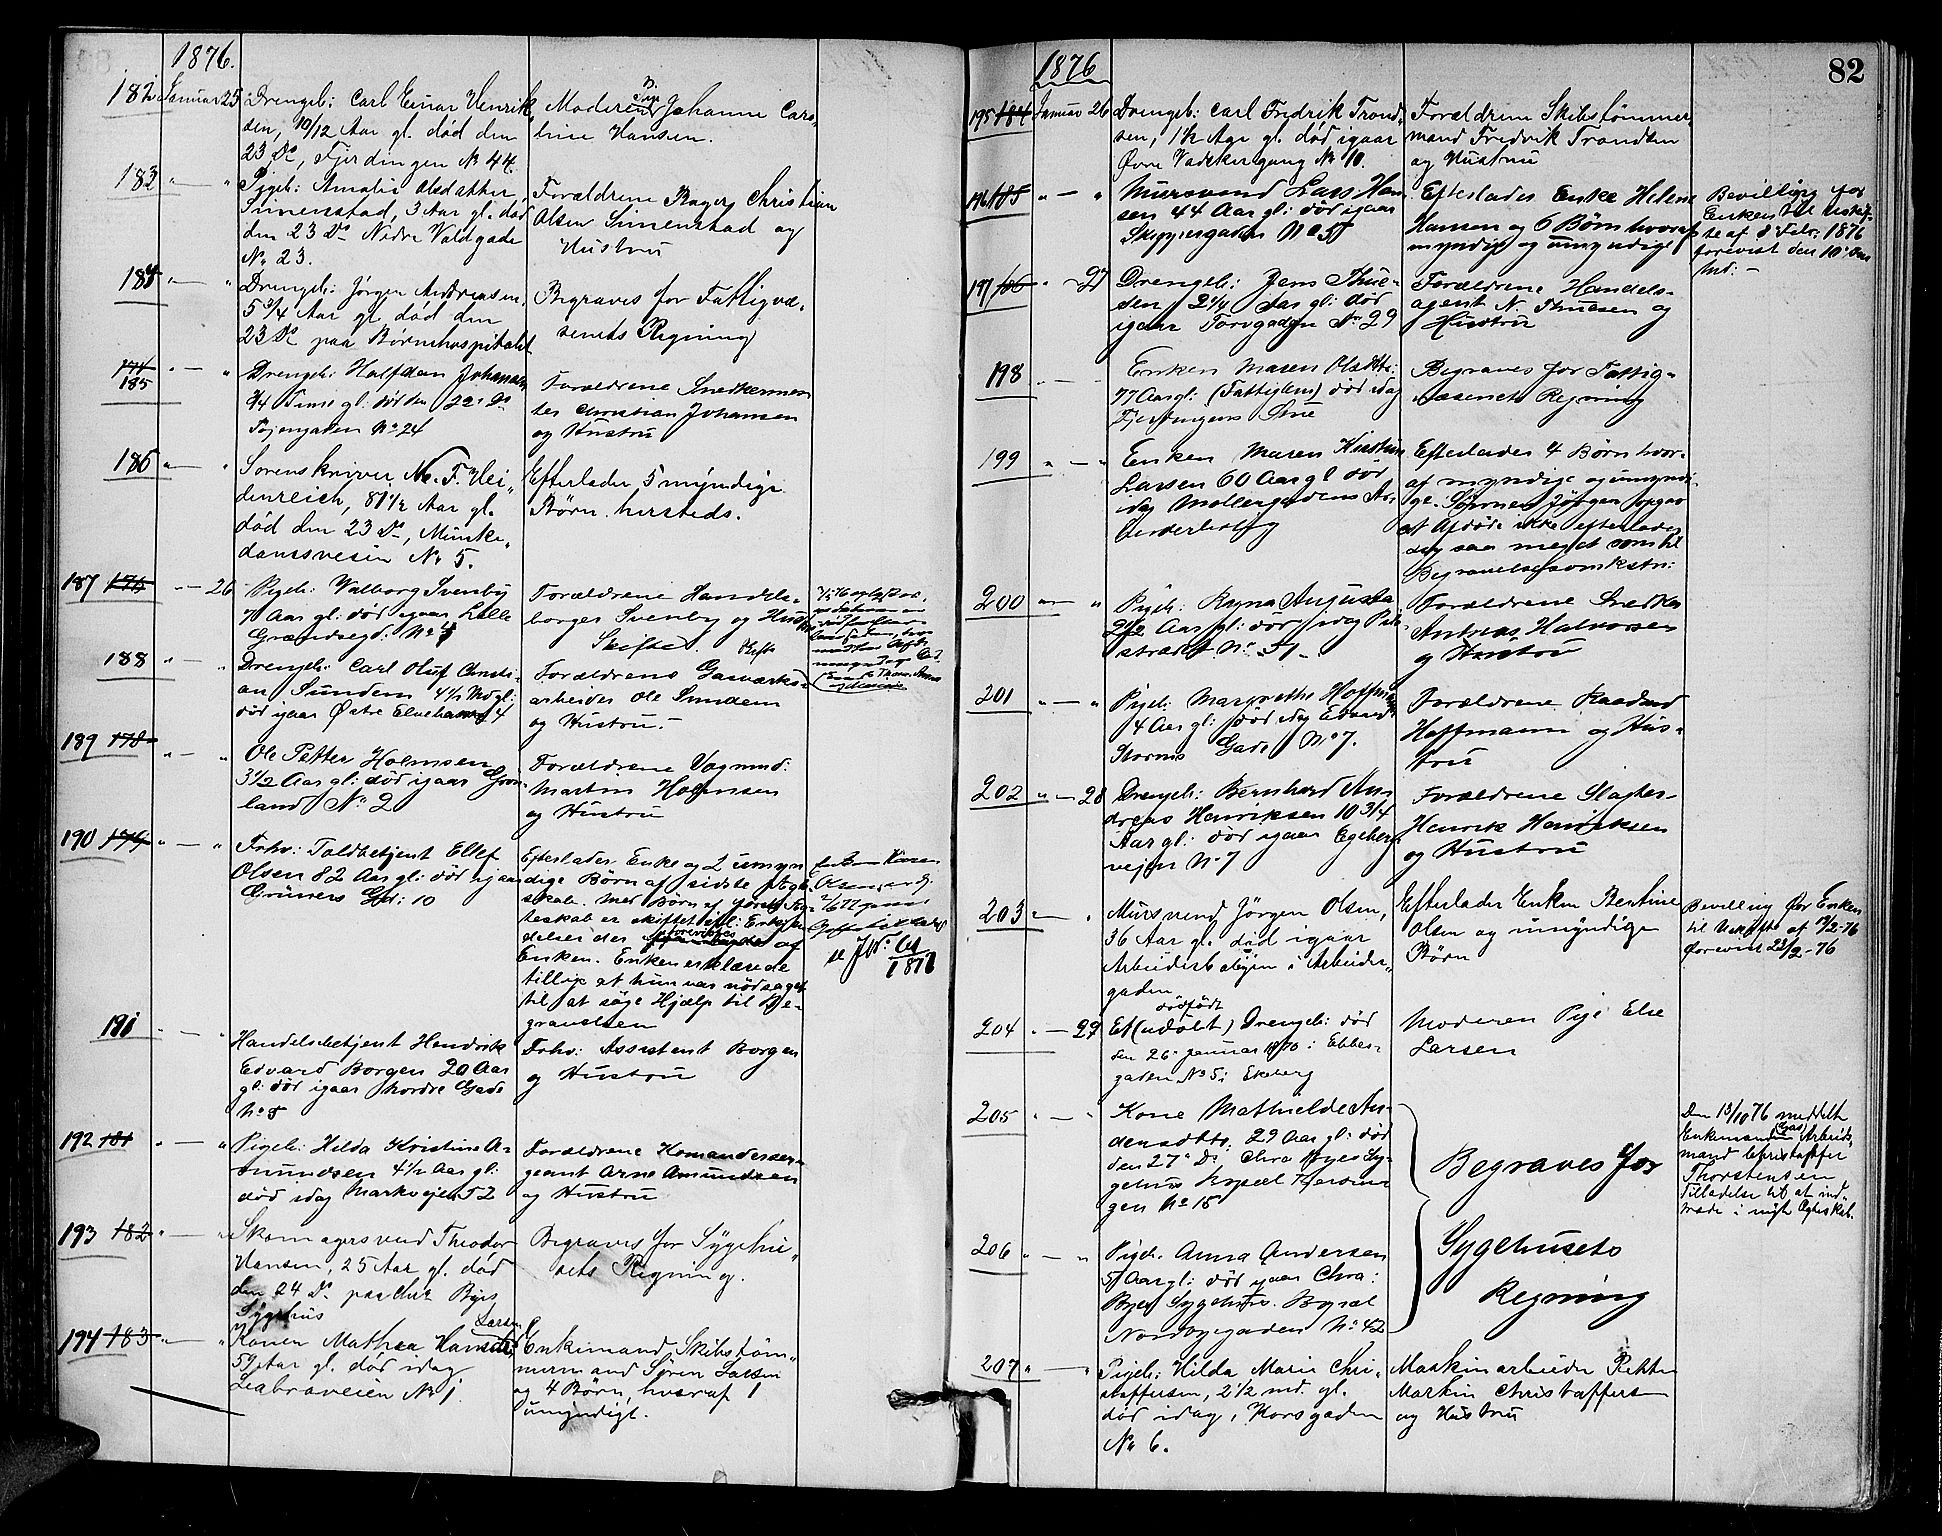 1876.
182 Januar 25 Drengeb: Carl Einar Henrik-
sen, 10/12 Aar gl. död den
23 Ds, Fjerdingen No 44.
Moderen Pige Johanne Caro-
line Hansen.
183 " — " Pigeb: Amalie Olsdatter
Simenstad, 3 Aar gl. död
den 23 Ds Nedre Voldgade
No 23.
Forældrene Bager Christian
Olsen Simenstad og
Hustru
184 " — " Drengeb: Jörgen Andreasen,
5 3/4 Aar gl. död den
23 Ds paa Børnehospitalet
Begraves for Fattigvæ-
senets Regning
185 " — " Drengeb: Halfdan Johansen
3/4 Time gl: död den 22 Ds
Töiengaden No 24
Forældrene Snedkerme-
ster Christian Johansen
og Hustru
186 " — " Sorenskriver N. F. Hei-
denreich, 81 1/2 Aar gl.
död den 23 Ds, Munke-
damsveien No 5.
Efterlader 5 myndige
Børn hersteds.
187 175 " — 26 Pigeb: Valborg Svenby
7 Aar gl: död igaar Lille
Grændsegd: No 4
Forældrene Handels-
borger Svenby og Hustru
Skifte.
188 " — " Drengeb: Carl Oluf Christi-
an Sundem 4 1/2 Md gl:
död igaar Østre Elvebakke 4
Forældrene Gasværks-
arbeider Ole Sundem
og Hustru.-
189 178 " — " Ole Petter Holmsen
3 1/2 Aar gl: död igaar Grön-
land No 2
Forældrene Vognmd:
Martin Holmsen
og Hustru
190 179 " — " Forhv: Toldbetjent Ellef
Olsen 82 Aar gl: död igaar
Grüners Gd: 10
Efterlader Enke og 2 umyn
dige Børn af sidste Ægte-
skab. Med Børn af første Æg-
teskab er skiftet
forevistes af
Enken. Enken erklærede
tillige at hun var nödsaget
til at søge Hjælp til Be-
gravelsen
se JNo: 64
1877
191 " — " Handelsbetjent Hendrik
Edvard Borgen 20 Aar
gl: död igaar Nordre Gade
No 8
Forhv: Assistent Borgen
og Hustru
192 181 " — " Pigeb: Hilda Kristine A-
mundsen 4 1/2 Aar gl:
död idag Markveien 52
Forældrene Komandeerser-
geant Arne Amundsen
og Hustru
193 182 " — " Skomagersvend Theodor
Hansen, 25 Aar gl. död
den 24 Ds paa Chra Byes
Sygehus
Begraves for Sygehu-
sets Regning.
194 183 " — " Konen Mathea Larsen
59 Aar gl. död idag
Ljabroveien No 1.
Enkemand Skibstöm-
mermand Sören Larsen
og 4 Børn, hvoraf 1
umyndigt.
82
1876
195 184 Januar 26 Drengeb: Carl Fredrik Trond-
sen, 1 1/2 Aar gl. död igaar
Øvre Vadskergang No 10.
Forældrene Skibstømmer-
mand Fredrik Trondsen
og Hustru
196 185 " — " Mursvend Lars Han-
sen 44 Aar gl: död igaar
Skippergaden No 5
Efterlader Enke Helene
Hansen og 6 Børn hvoraf
myndig og umyndige
Bevilling for
Enken til Uskif-
te af 8 Febr: 1876
forevist den 10 om
Md: -
197 186 " — 27 Drengeb: Jens Thue-
sen 2 1/4 Aar gl: död
igaar Torvgaden No 29
Forældrene Handels-
agent N. Thuesen og
Hustru
198 " — Enken Maren Olsdtr:
77 Aar gl: (Fattiglem) död idag
Fjerdingens Stue
Begraves for Fattig-
væsenets Regning
199 " — " Enken Maren
Larsen 60 Aar gl död
idag Møllergadens Ar-
beiderbolig
Efterlader 4 Børn hvor-
af myndige og umyndi-
ge. Sönnen Jörgen opgav
at Afdøde ikke efterlader
sig saa meget som til
Begravelsesomkostn:
200 " — " Pigeb: Ragna Augusta
2 1/2 Aar gl: död idag Pile-
strædet No 51-
Forældrene Snedker
Andreas Halvorsen
og Hustru
201 " — " Pigeb: Margrethe Hoffmann
4 Aar gl: död idag Edvard
Storms Gade No 7.
Forældrene
Hoffmann og Hus-
tru
202 " — 28 Drengeb: Bernhard An-
dreas Henriksen 10 3/4
Aar gl: död igaar Egeberg-
veien No 7
Forældrene Slagter
Henrik Henriksen
og Hustru
203 " — " Mursvend Jörgen Olsen,
36 Aar gl. död igaar
Arbeiderboligen i Arbeider-
gaden
Efterlader Enken Bertine
Olsen og umyndige
Børn
Bevilling for Enken
til Uskifte af 19/2-76
forevist 22/2-76
204 " — 29 Et (udøbt) dødfødt Drengeb: död
den 26 Januar 1876 i Ebbes-
gaden No 5 i Ekeberg
Moderen Pige Else
Larsen
205 " — " Kone Mathilde An-
densdtr: 29 Aar gl: död
den 27 Ds Chra Byes Sy-
gehus
gen No 15
Begraves for
Sygehusets
Regning
Den 13/10 76 meddelt
Enkemanden Arbeids-
mand Christoffer
Thorstensen
Tilladelse til at ind-
træde i nyt Ægteskab.
206 " — " Pigeb. Anna Andersen
5 Aar gl: död igaar Chra:
Byes Sygehus. Bopæl
Nordbygaden No 42
207 " — " Pigeb: Hilda Marie Chri-
stoffersen, 2 1/2 md. gl.
död idag, Korsgaden
No 6.
Maskinarbeider Petter
Martin Christoffersen
og Hustru